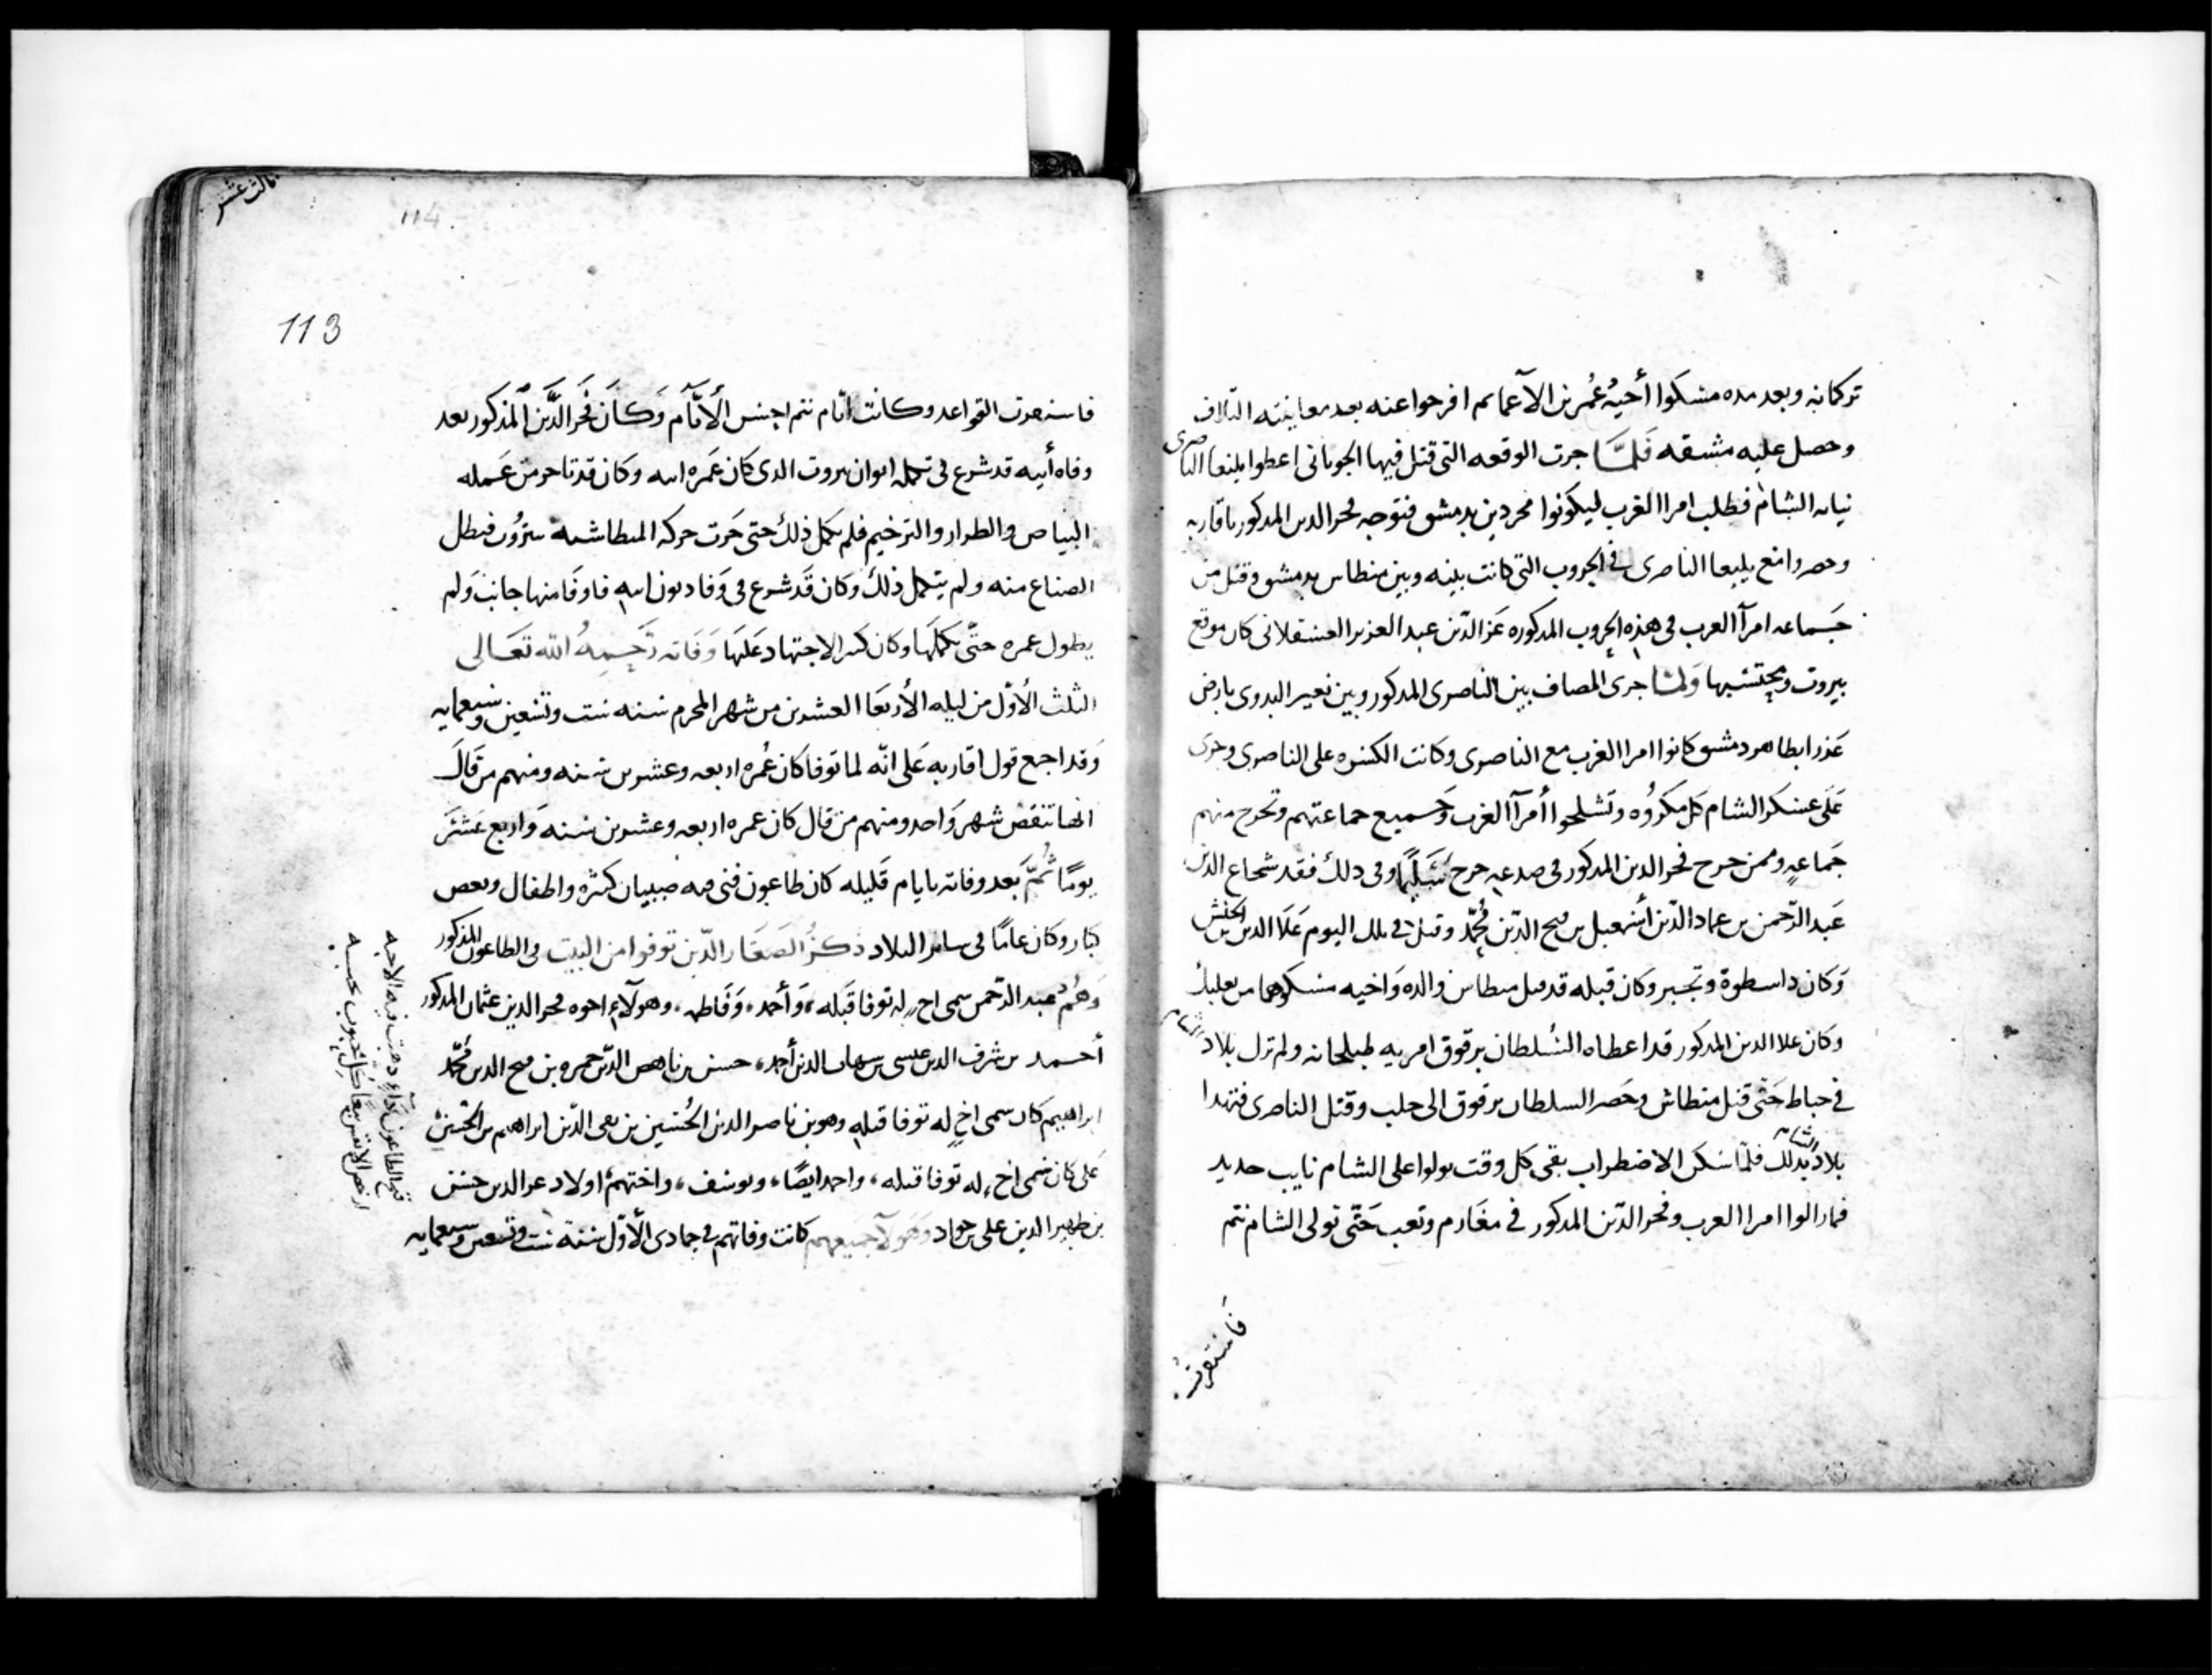 تركمانه وبعد مده مسكوا أخيه عُمر بن الاعمام افرجوا عنه بعد معاينته التلاف
وحصل عليه مشقه فَلمَّا جرت الوقعه التى قتل فيها الجوبانى اعطوا يلبغا الناصرى
نيابه الشام فطلب امرا الغرب ليكونوا مجردين بدمشق فتوجه فخر الدين المذكور باقاربه
وحضروا مع يلبغا الناصرى فى الحروب التى كانت بينه وبين منطاش بدمشق وقتل من
جَماعه امرآ الغرب فى هذه الحروب المذكوره عَز الدّين عبد العزيز العسقلانى كان موقع
بيروت ومحتسبها وَلمّا جرى المصاف بين الناصرى المذكور وبين نعير البدوى بارض
عَذرا بظاهر دمشق كانوا امرا الغرب مع الناصرى وكانت الكسره على الناصرى وجرى
عَلى عسكر الشام كل مكروُه وتشلحوا أمرآ الغرب وَجميع جماعتهم وتجرح منهم
جَماعهٍ وممن جرح فخر الدين المذكور فى صدغه جرح سَلِيمًا وفى ذلك فقد شجاع الدين
عَبد الرّحمن بن عماد الدّين أسمعيل بن فتح الدّين مُحمّد وقتل فى ذلك اليوم عَلَا الدين بن الحنش
وَكان ذا سطوة وتجبر وكان قبله قد قتل منطاش والده وَاخيه مسكوهما من بعلبك
وكان علا الدين المذكور قد اعطاه السُلطان برقوق امريه طبلخانه ولم تزل بلاد الشام
فى خباط حَتّى قتل منطاش وحَضر السلطان برقوق الى حلب وقتل الناصرى فتهدا
بلاد الشام بذلك فلمّا سَكن الاضطراب بقى كل وقت يولوا على الشام نايب جديد
فما زالوا امرا الغرب وفخر الدّين المذكور فى مغَارم وتعب حَتّى تولى الشام تنم
فاستقرت
ثالث عشر
114
113
فاستقرت القواعد وكانت ايّام تنم احسن الأيَّام وَكانَ فَخر الدَّين المذكور بعد
وفاه أبيه قد شرع فى تكمله ايوان بيروت الذى كان عَمَره ابيه وكان قد تاخر من عَمله
البياض والطراز والترخيم فلم يكمل ذلك حتى جَرت حركه المنطاشيه فبطل
الصناع منه ولم يتكمل ذلك وكان قَد شرع فى وَفا ديون ابيه فاوفَا منها جانب وَلم
يطول عمره حتّى يكملَها وكان كثير الاجتهاد عَليَها وَفَاته رَّحِمهُ الله تعَالى
الثلث الأوّل من ليله الأربَعَا العشرين من شهر المحرم سنه ست وتسعين وسبعمايه
وَقد اجمع قول اقاربه عَلى انّه لما توفا كان عُمره اربعه وعشرين سنه ومنهم من قَالَ
انها تنقص شهر وَاحد ومنهم من قال كان عمره اربعه وعشرين سنه وَاربع عَشَرَ
يومًا ثُمَّ بَعد وفاته بايام قَليله كان طاعون فنى فيه صبيان كثيره واطفال وبعض
كبار وكان عامًا فى سائر البلاد ذكرُ الصَغَار الذّين توفوا من البيت فى الطاعون المذكور
وَهُم عبد الرّحمن سمى اخٍ له توفا قَبله، وَأحمد، وَفَاطمه، وهولآءِ اخوه فخر الدين عثمان المذكور
أحمد بن شرف الدين عيسى بن شهاب الدين أحمد، حسن بن ناهض الدّين حمزه بن فتح الدين مُحمّد
ابراهيم كان سمى اخٍ له توفا قبله وهو بن ناصر الدين الحُسَين بن تقى الدّين ابراهيم بن الحُسَين
عَلى كان سمى اخ، له توفا قبله، واحمد ايضًا، ويوسف، واختهمُ اولاد عز الدين حسن
بن ظهير الدين على بن جواد وَهَولآ جَميعهم كانت وفاتهم فى جمادى الأوّل سنة ست وتسعين وسبعمايه
قبح الطاعون دَآءٍ ذهبت فيه الاحبه
ارخص الانفس بيعًا كُل محبوب بحبه